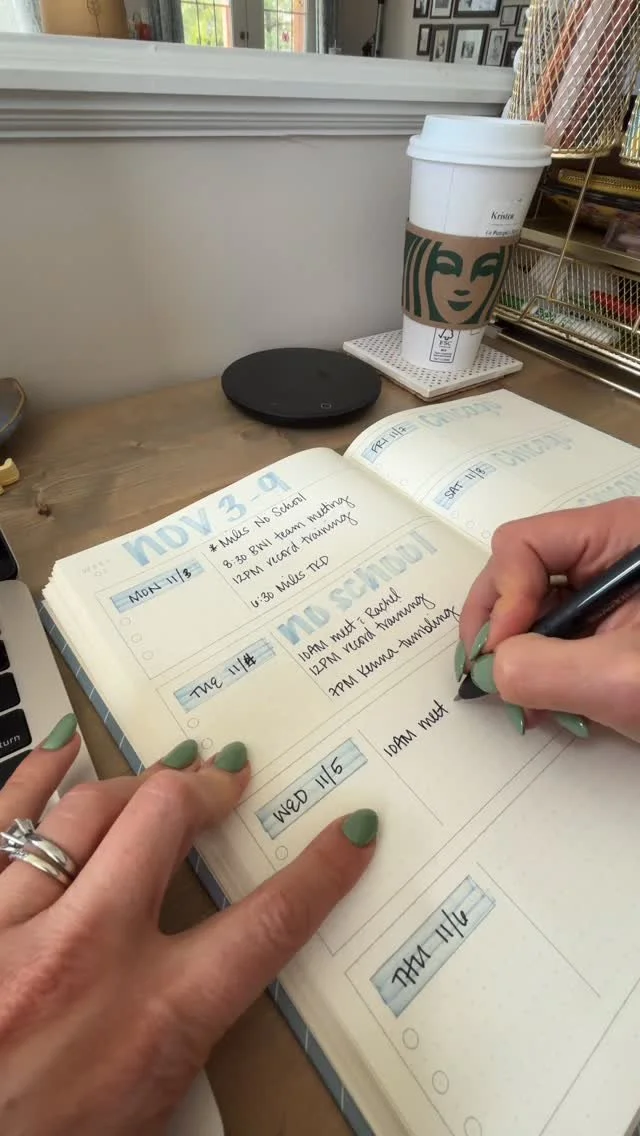 Kristen
FSC
return
NOV 3-9
MON 11/3
* Miles No School
8:30 BWI team meeting
12PM record training
6:30 Miles TKD
TUE 11/4
no school
10AM meet c̄ Rachel
12PM record training
7PM Kenna-tumbling
WED 11/5
10AM meet
THU 11/6
FRI 11/7
Chicago
SAT 11/8
Chicago
Chicago